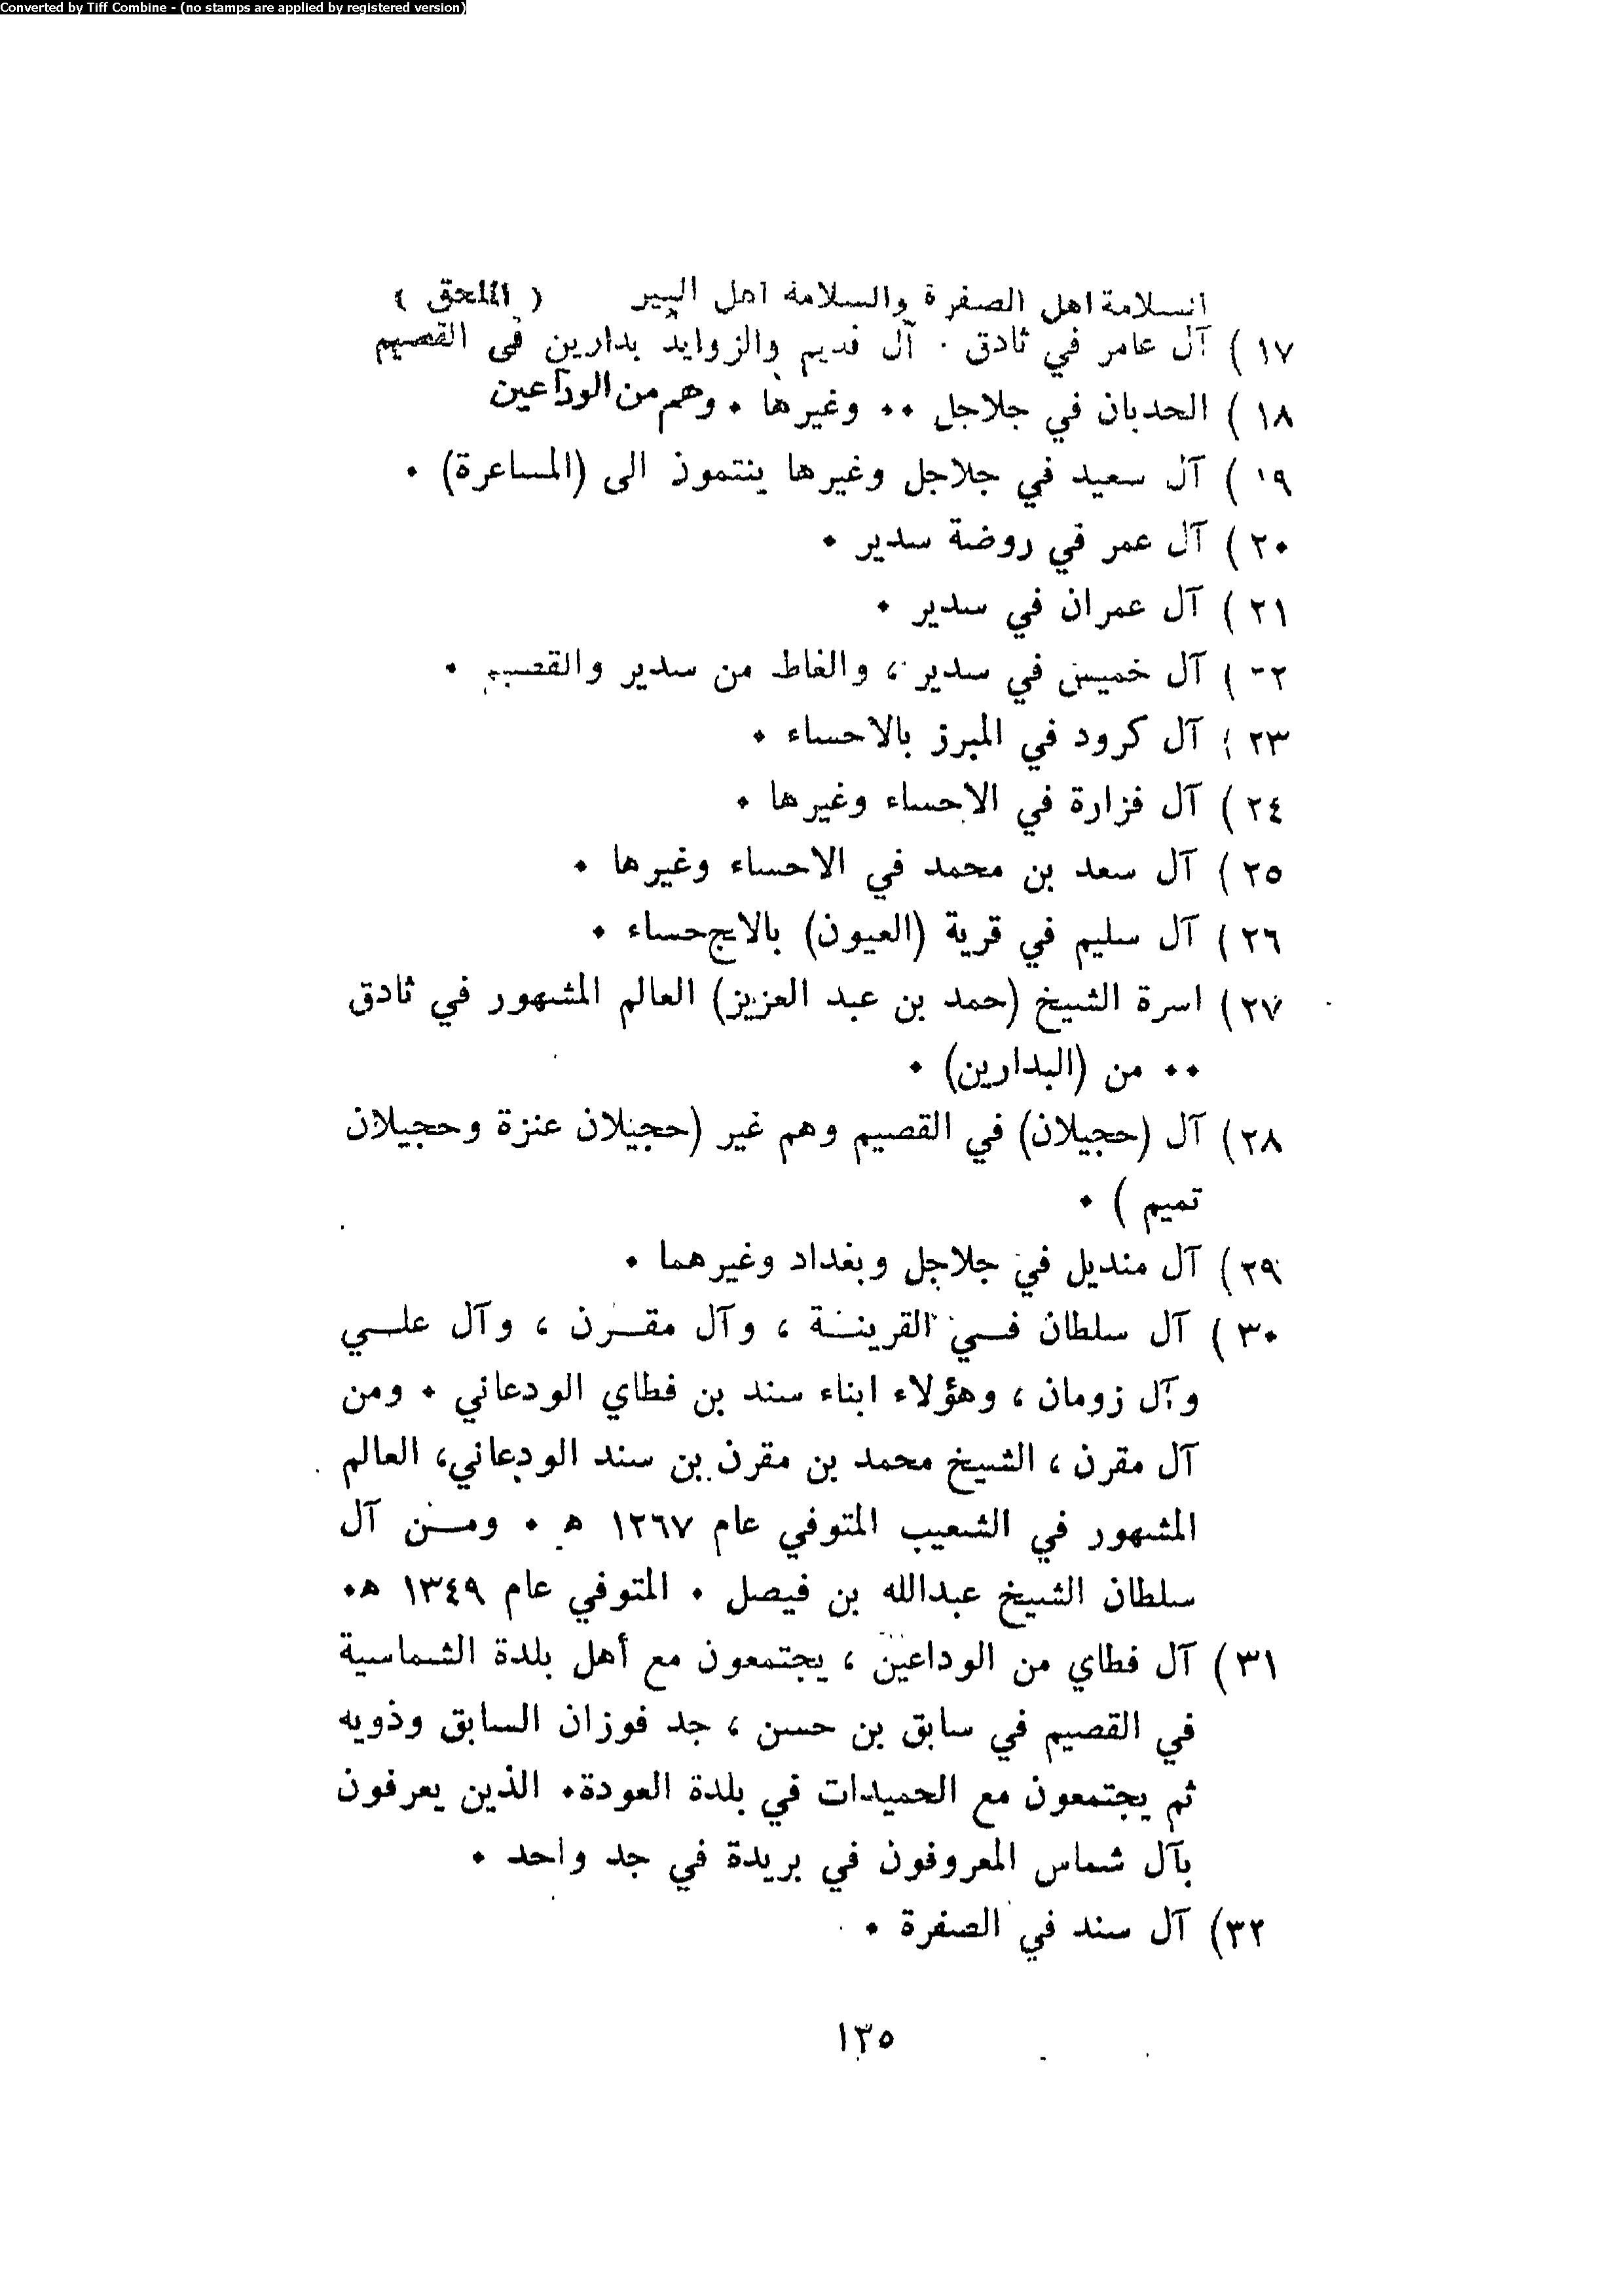 Converted by Tiff Combine - (no stamps are applied by registered version)
السلامة اهل الصفرة والسلامة اهل البير ( الملحق )
١٧ ) آل عامر في ثادق . آل قديم والزوايد بدارين في القصيم
١٨ ) الحدبان في جلاجل .. وغيرها . وهم من الوداعين
١٩ ) آل سعيد في جلاجل وغيرها ينتمون الى (المساعرة) .
٢٠ ) آل عمر في روضة سدير .
٢١ ) آل عمران في سدير .
٢٢ ) آل خميس في سدير ، والغاط من سدير والقصيم .
٢٣ ) آل كرود في المبرز بالاحساء .
٢٤ ) آل فزارة في الاحساء وغيرها .
٢٥ ) آل سعد بن محمد في الاحساء وغيرها .
٢٦ ) آل سليم في قرية (العيون) بالاجحساء .
٢٧ ) اسرة الشيخ (حمد بن عبد العزيز) العالم المشهور في ثادق
.. من (البدارين) .
٢٨ ) آل (حجيلان) في القصيم وهم غير (حجيلان عنزة وحجيلان
تميم ) .
٢٩ ) آل منديل في جلاجل وبغداد وغيرهما .
٣٠ ) آل سلطان في القرينة ، وآل مقرن ، وآل علي
وآل زومان ، وهؤلاء ابناء سند بن فطاي الودعاني . ومن
آل مقرن ، الشيخ محمد بن مقرن بن سند الودعاني، العالم
المشهور في الشعيب المتوفي عام ١٢٦٧ هـ . ومن آل
سلطان الشيخ عبدالله بن فيصل . المتوفي عام ١٣٤٩ هـ.
٣١ ) آل فطاي من الوداعين ، يجتمعون مع أهل بلدة الشماسية
في القصيم في سابق بن حسن ، جد فوزان السابق وذويه
ثم يجتمعون مع الحميدات في بلدة العودة. الذين يعرفون
بآل شماس المعروفون في بريدة في جد واحد .
٣٢) آل سند في الصفرة .
١٣٥